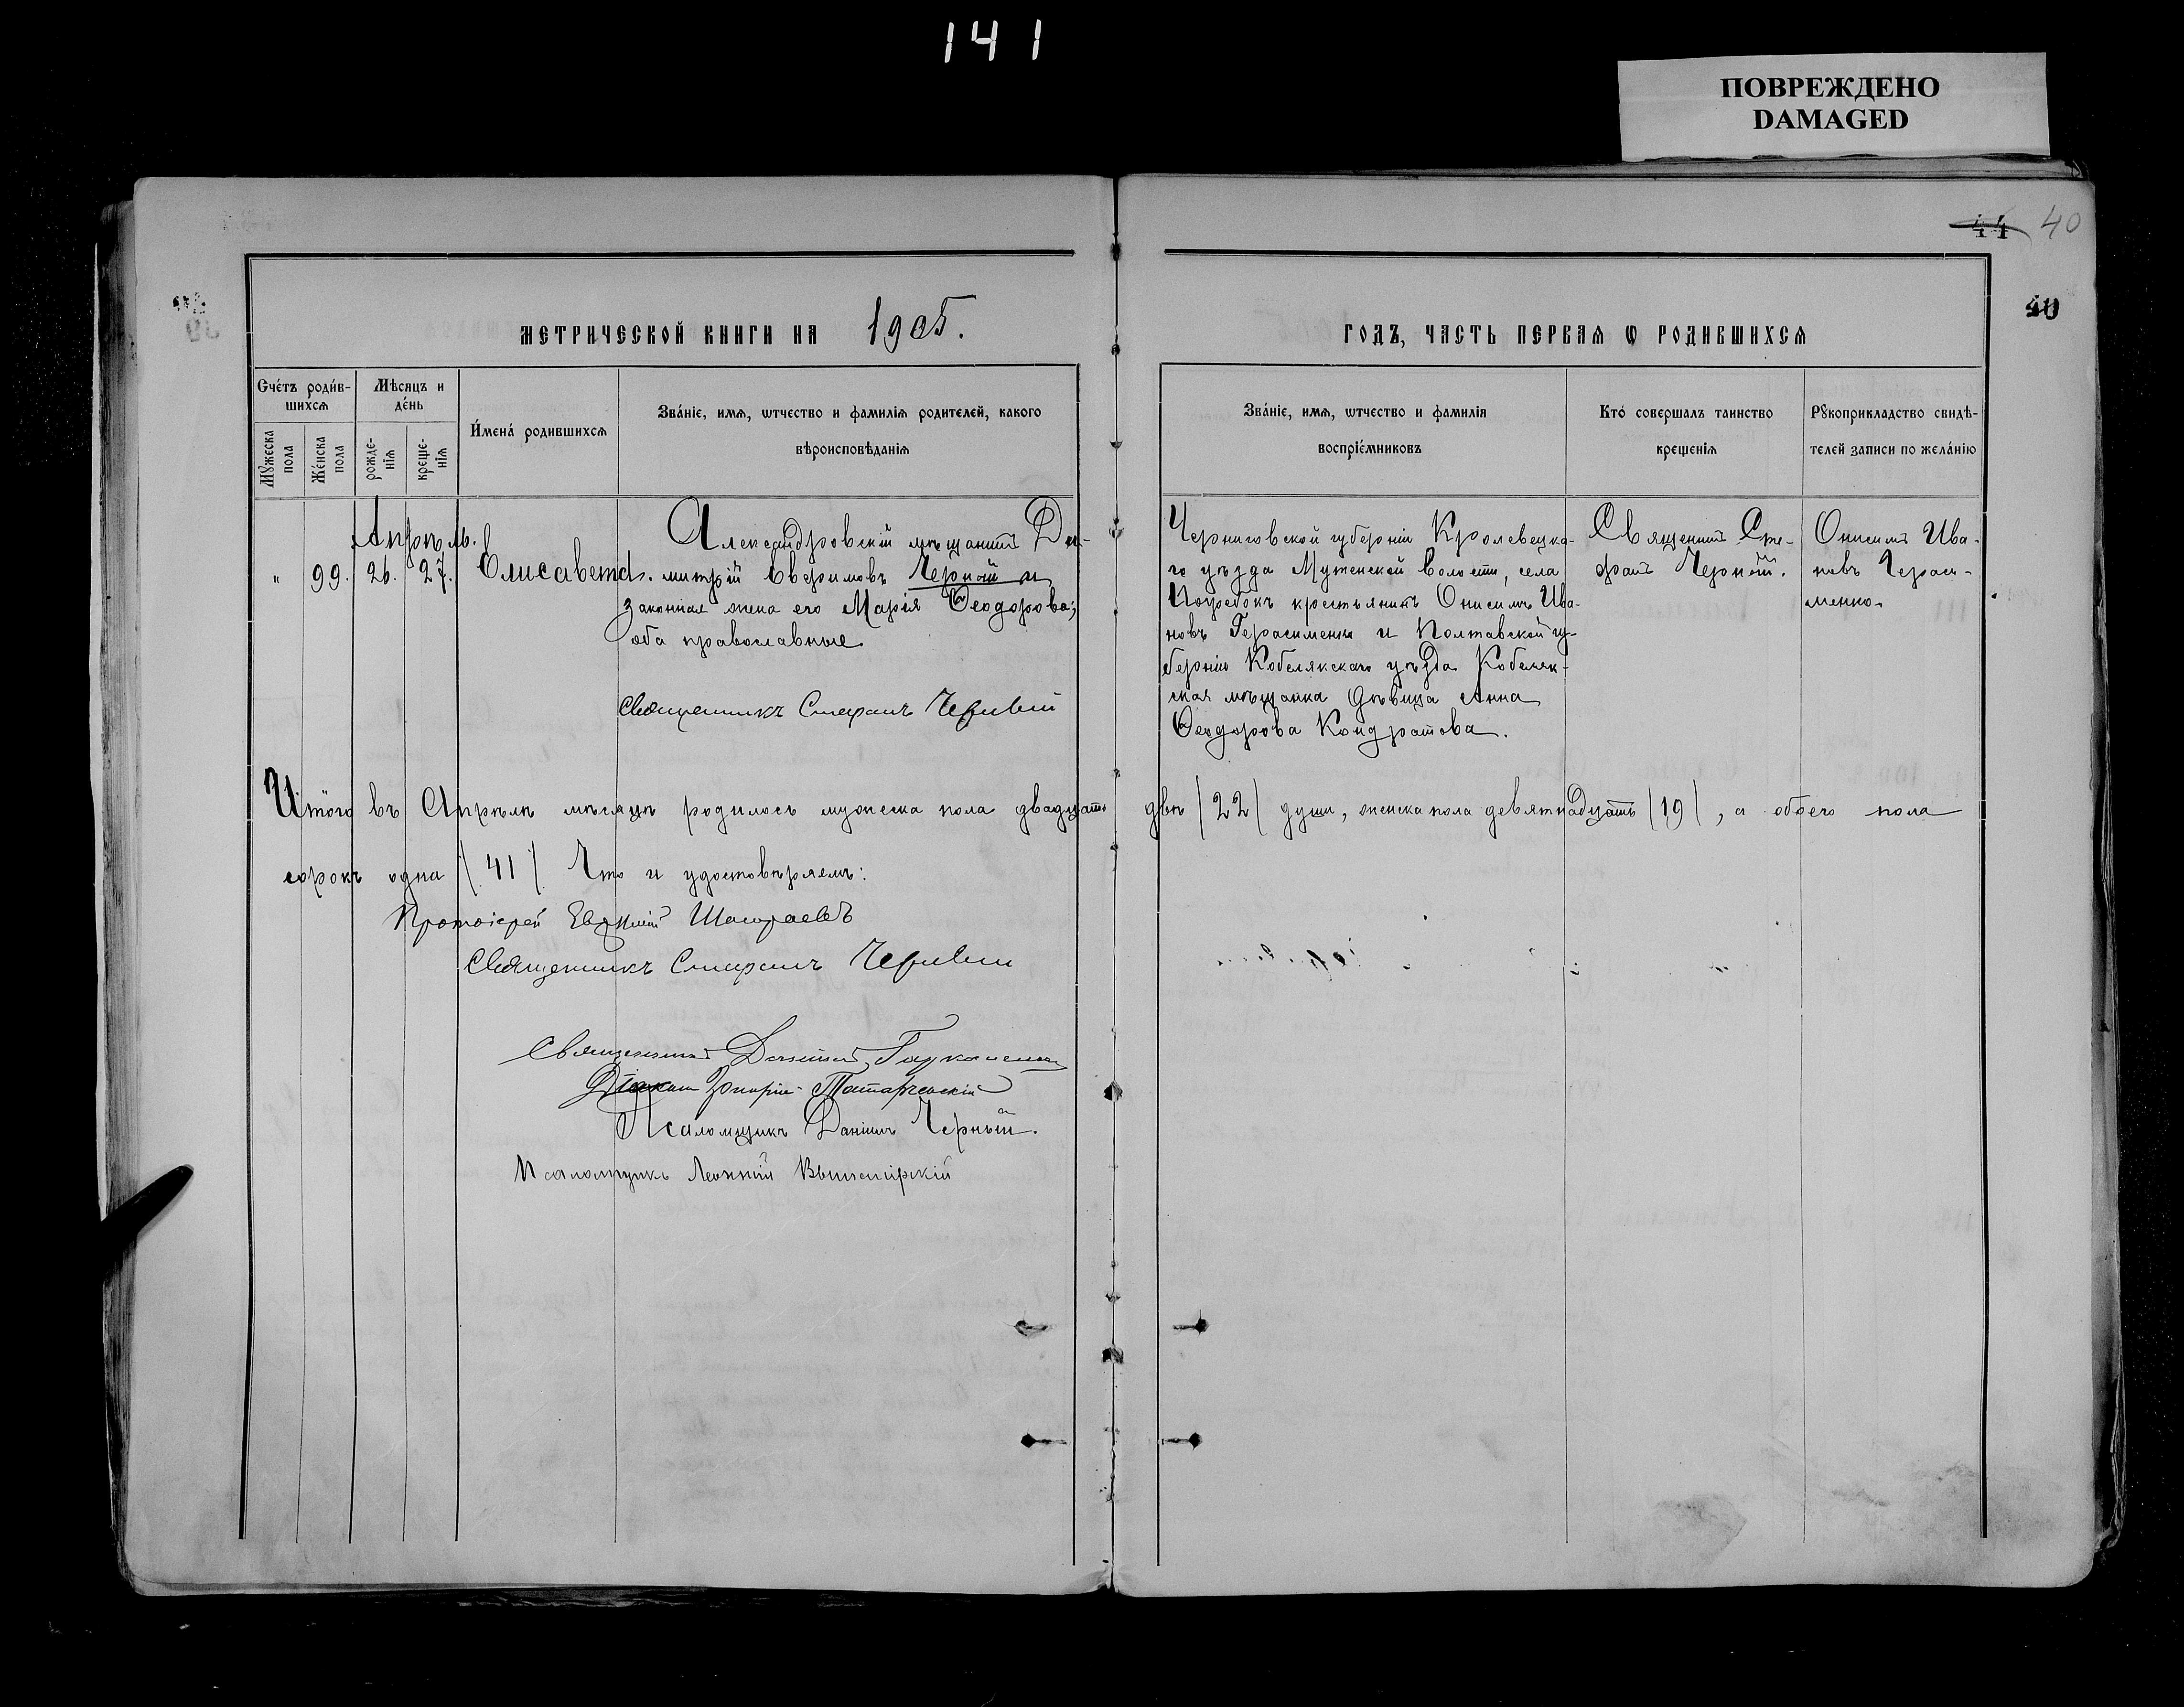 141
ПОВРЕЖДЕНО
DAMAGED
44 40
40
МЕТРИЧЕСКОЙ КНИГИ НА 1905.
ГОДЪ, ЧАСТЬ ПЕРВАЯ Ѡ РОДИВШИХСЯ
Счётъ роди́в-
шихсѧ
Мѣсяцъ и
де́нь
Мꙋ́жеска
пола
Же́нска
пола
рожде-
нїѧ
креще-
нїѧ
И́мена́ родившихсѧ
Зва́нїе, имѧ, ѡтчество и фамилїѧ родителей, какого
вѣроисповѣданїѧ
Зва́нїе, имѧ, ѡтчество и фамилїѧ
воспрїе́мниковъ
Кто́ совершалъ таинство
крещенїѧ
Рꙋкоприкладство свидѣ-
телей записи по жела́нїю
Апрѣль.
" 99. 26. 27. Елисавета.
Александровскій мѣщанинъ Ди-
митрій Евфимовъ Черный и
законная жена его Марія Ѳеодорова;
оба православные.
Священникъ Стефанъ
Черниговской губерніи Кролевецка-
го уѣзда Мутенской волости, села
крестьянинъ Онисимъ Ива-
новъ Герасименко и Полтавской гу-
берніи Кобелякскаго уѣзда Кобеляк-
ская мѣщанка дѣвица Анна
Ѳеодорова Кондратова.
Священникъ Сте-
фанъ Черный.
Онисимъ Ива-
новъ Гераси-
менко.
Итого въ Апрѣлѣ мѣсяцѣ родилось мужеска пола двадцать двѣ /22/ души, женска пола девятнадцать /19/, а обоего пола
сорокъ одна /41/. Что и удостовѣряемъ:
Протоіерей
Священникъ Стефанъ
Священникъ
Діаконъ
Псаломщикъ Даніилъ Черный.
Псаломщикъ